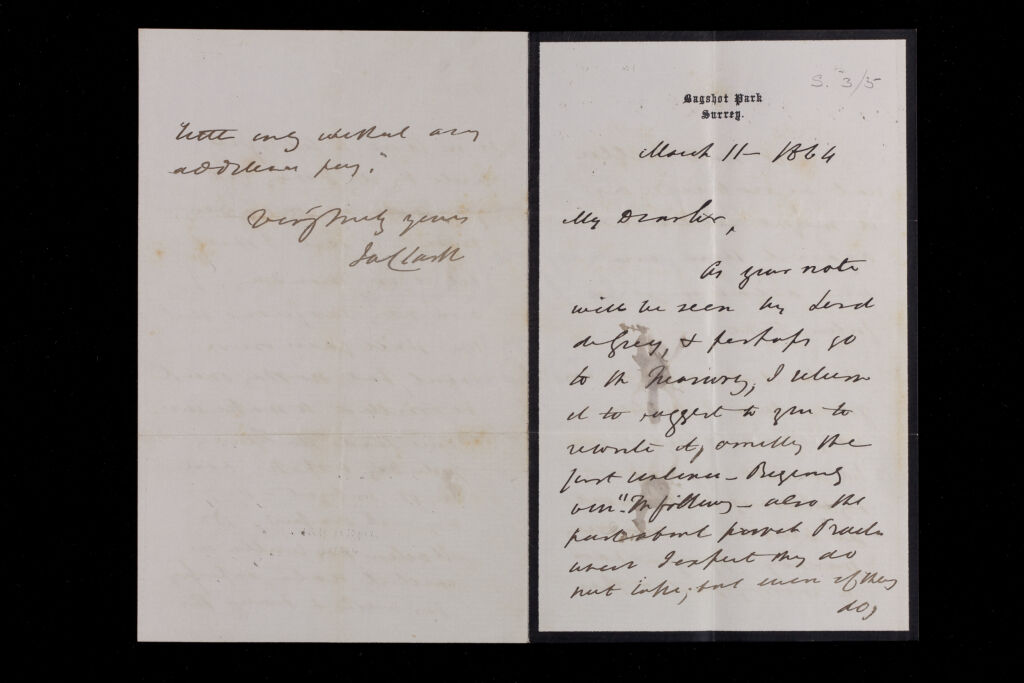 S. 3/5
Bagshot Park
Surrey.
March 11 - 1864
My Dear Sir,
As your note
will be seen by Lord
de Grey, & perhaps go
to the Treasury, I return
it to suggest to you to
rewrite it, omitting the
first sentence - Beginning
"The following - also the
part about private Practice
which I expect they do
not take; but even if they
do,
only without any
additional pay."
Very truly yours
Ja Clark